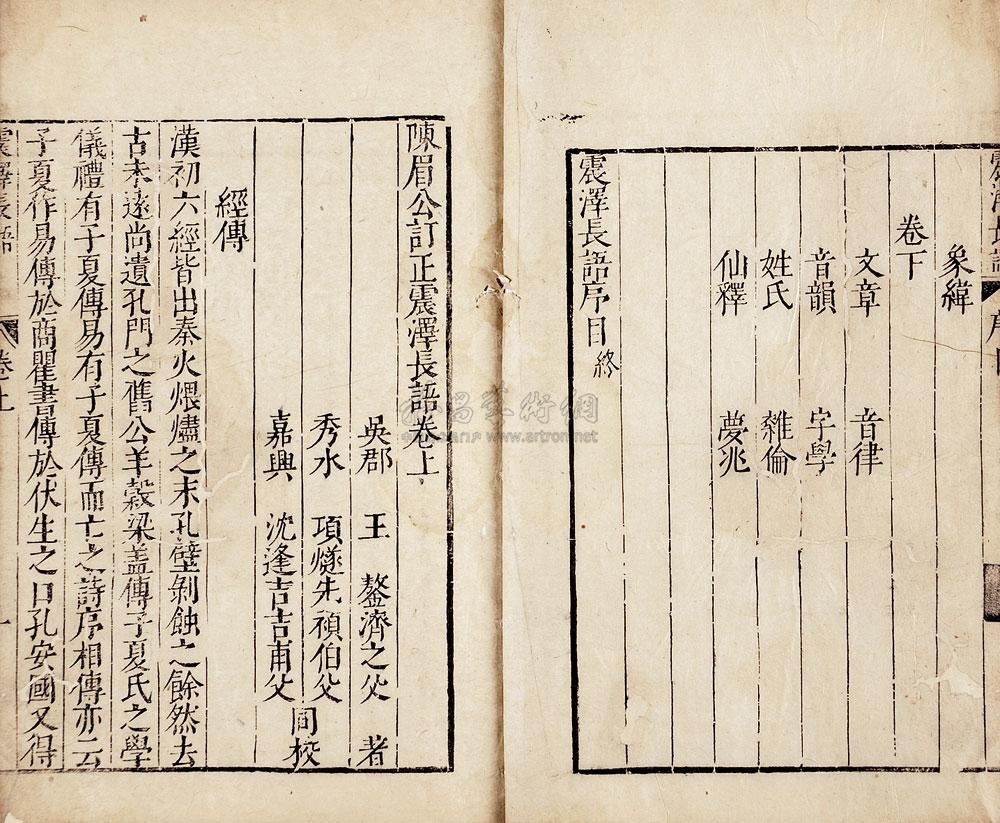 震澤長語 序目
象緯
卷下
文章 音律
音韻 字學
姓氏 雜倫
仙釋 夢兆
震澤長語序目終
陳眉公訂正震澤長語卷上
吳郡 王 鏊濟之父 著
秀水 項燧先禎伯父
嘉興 沈逢吉吉甫父 同校
經傳
漢初六經皆出秦火煨燼之末孔壁剝蝕之餘然去
古未遠尚遺孔門之舊公羊穀梁盖傳子夏氏之學
儀禮有子夏傳易有子夏傳而亡之詩序相傳亦云
子夏作易傳於商瞿書傳於伏生之口孔安國又得
震澤長語 卷上 一
www.artron.net